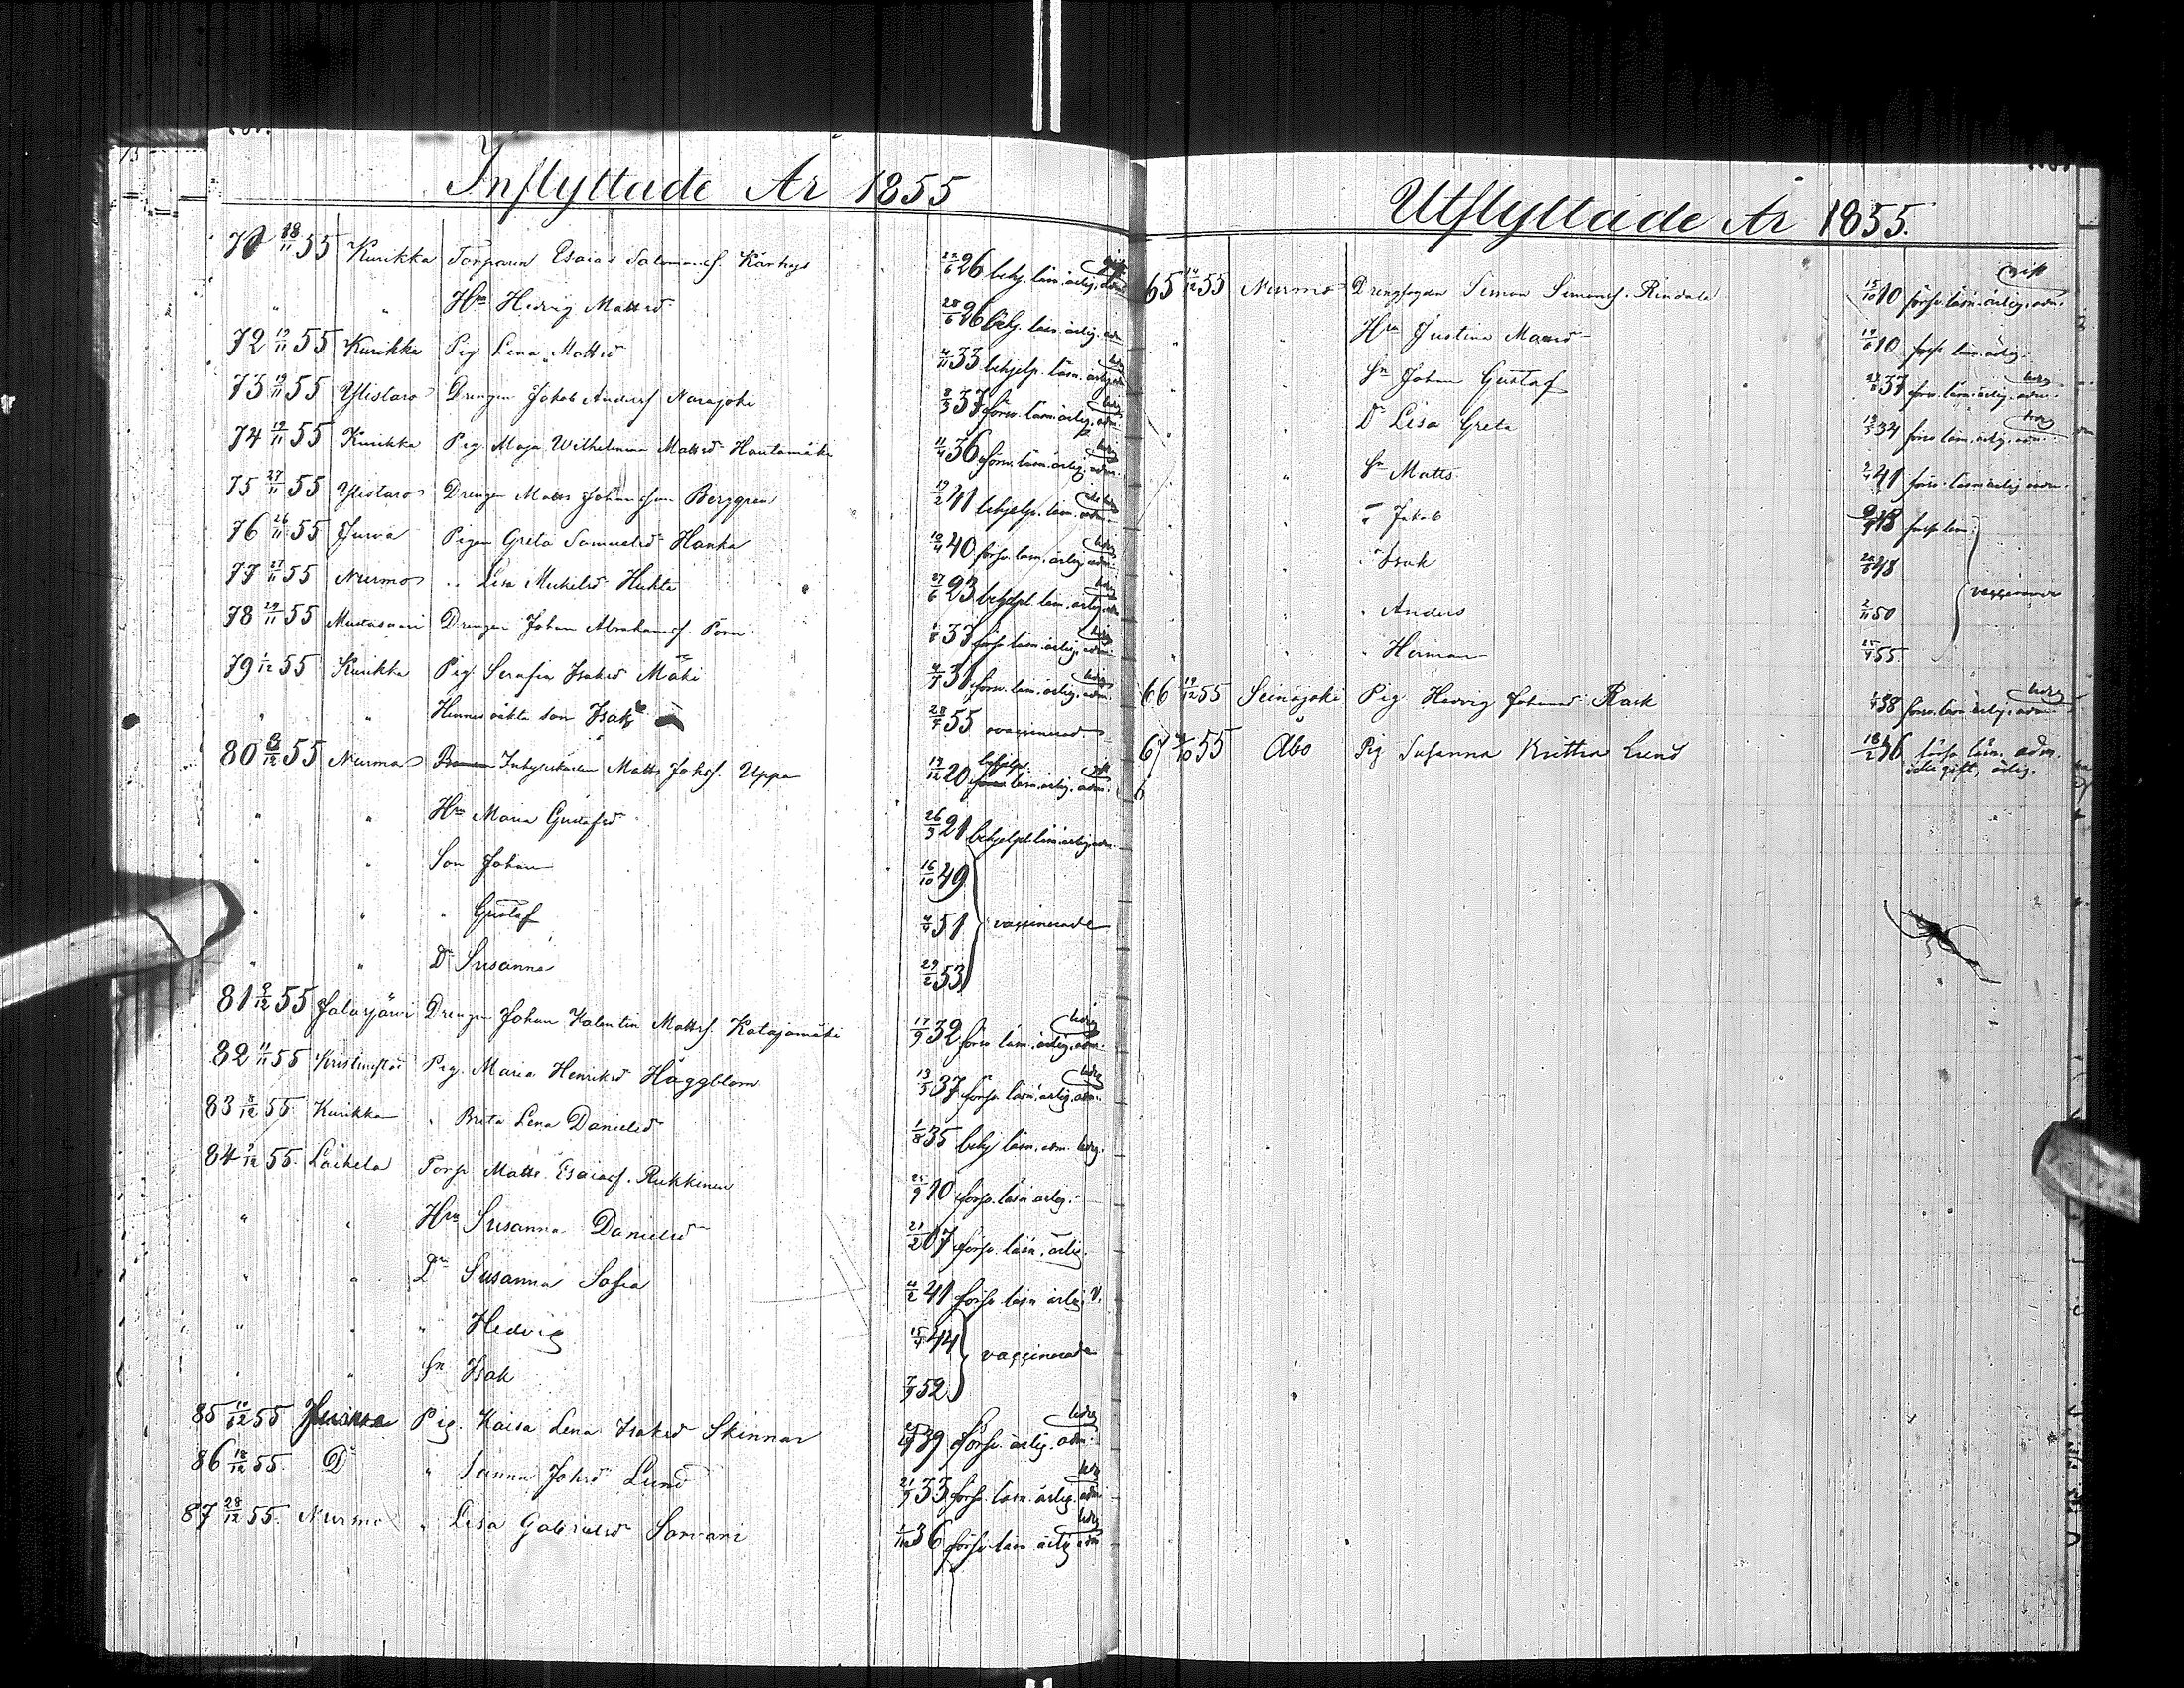 Inflyttade År 1855
70 18/11 55 Kurikka Torparen Esaias Salomonsf. Kärhys 22/6 26 behj. läsn. ärlig. adm. gift
" " Hru Hedvig Mattsd 28/6 26 behj. läsn. ärlig. adm
72 19/11 55 Kurikka Pig. Lena Mattsd 4/11 33 behjelp. läsn. ärlig. adm ledig
73 19/11 55 Ylistaro Drengen Jakob Andersf Narajoki 8/3 37 försv. läsn. ärlig. adm. ledig
74 19/11 55 Kurikka Pig. Maja Wilhelmina Mattsd Hautamäki 11/4 36 försv. läsn. ärlig. adm. ledig
75 27/11 55 Ylistaro Drengen Matts Johansson Berggren 19/2 41 behjelp. läsn. adm.
76 26/11 55 Jurva Pigan Greta Samuelsd Hanka 10/4 40 försv. läsn. ärlig. adm. ledig
77 27/11 55 Nurmo " Lisa Mickelsd Huhta 27/6 23 behjelpl. läsn. ärlig. adm ledig
78 29/11 55 Mustasaari Drengen Johan Abrahamsf. Porn 33 försv. läsn. ärlig. adm. ledig
79 1/12 55 Kurikka Pig. Serafia Isaksd Mäki 31 försv. läsn. ärlig. adm. ledig
" " Hennes oäkta son Isak 28/7 55 ovaccinerad
80 8/12 55 Nurmo Inhysikarlen Matts Johsf. Uppa 19/12 20 behjelpl. läsn. ärlig. adm. gift
" " Hru Maria Gustafsd 26/3 21 behjelpl. läsn. ärlig. adm.
" " Son Johan 16/10 49
" " " Gustaf 51 vaccinerade
" " Dr Susanna 29/2 53
81 9/12 55 Jalasjärvi Drengen Johan Valentin Mattsf. Katajamäki 17/9 32 försv läsn. ärlig. adm. ledig
82 11/11 55 Kristinestad Pig. Maria Henriksd Häggblom 13/5 37 försv. läsn. ärlig. adm. ledig
83 8/12 55 Kurikka " Brita Lena Danielsd 1/8 35 behj läsn. adm. ledig.
84 9/12 55 Laihela Torp Matts Esaiasf. Rukkinen 10 försv. läsn ärlig.
" " Hru Susanna Danielsd 21/2 07 försv. läsn. ärlig.
" " Dr Susanna Sofia 4/2 41 försv läsn ärlig. v.
" " " Hedvig 44 vaccinerade
" " Sn Isak 52
85 55 Pig. Kaisa Lena Isaksd Skinnar 39 försv. ärlig. adm. ledig
86 18/12 55 Do " Sanna Johsd Lund 21/9 33 försv. läsn. ärlig. adm ledig
87 28/12 55 Nurmo " Lisa Gabrielsd Sorvari 36 försv. läsn. ärlig. adm ledig
Utflyttade År 1855.
65 14/12 55 Nurmo Drengfogden Simon Simonsf. Rindala 15/10 10 försv. läsn. ärlig. adm. gift
" " Hru Justina Mattsd 10 försv. läsn. ärlig.
" " Sn Johan Gustaf 37 försv. läsn. ärlig. adm. ledig
" " Dr Lisa Greta 34 försv läsn. ärlig. adm. ledig
" " Sn Matts 41 försv. läsn. ärlig adm.
" " " Jakob 43 försv. läsn.
" " " Isak 48
" " " Anders 2/11 50 vaccinerade
" " " Herman 55
66 19/12 55 Seinäjoki Pig Hedvig Johansd Rask 38 försv. läsn. ärlig. adm. ledig
67 55 Åbo Pig Susanna Kristina Lund 18/2 36 försv. läsn. adm.
icke gift, ärlig.